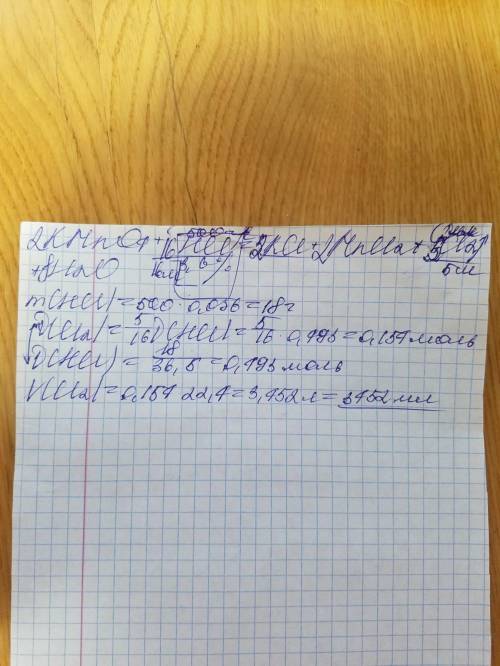 2KMnO4 + 16HCl = 2KCl + 2MnCl2 + 5Cl2
+ 8H2O 16 моль 3,6% 5 м
m(HCl) = 500 · 0,036 = 18 г
ν(Cl2) = 5/16 ν(HCl) = 5/16 · 0,493 = 0,154 моль
ν(HCl) = 18/36,5 = 0,493 моль
V(Cl2) = 0,154 · 22,4 = 3,452 л = 3452 мл